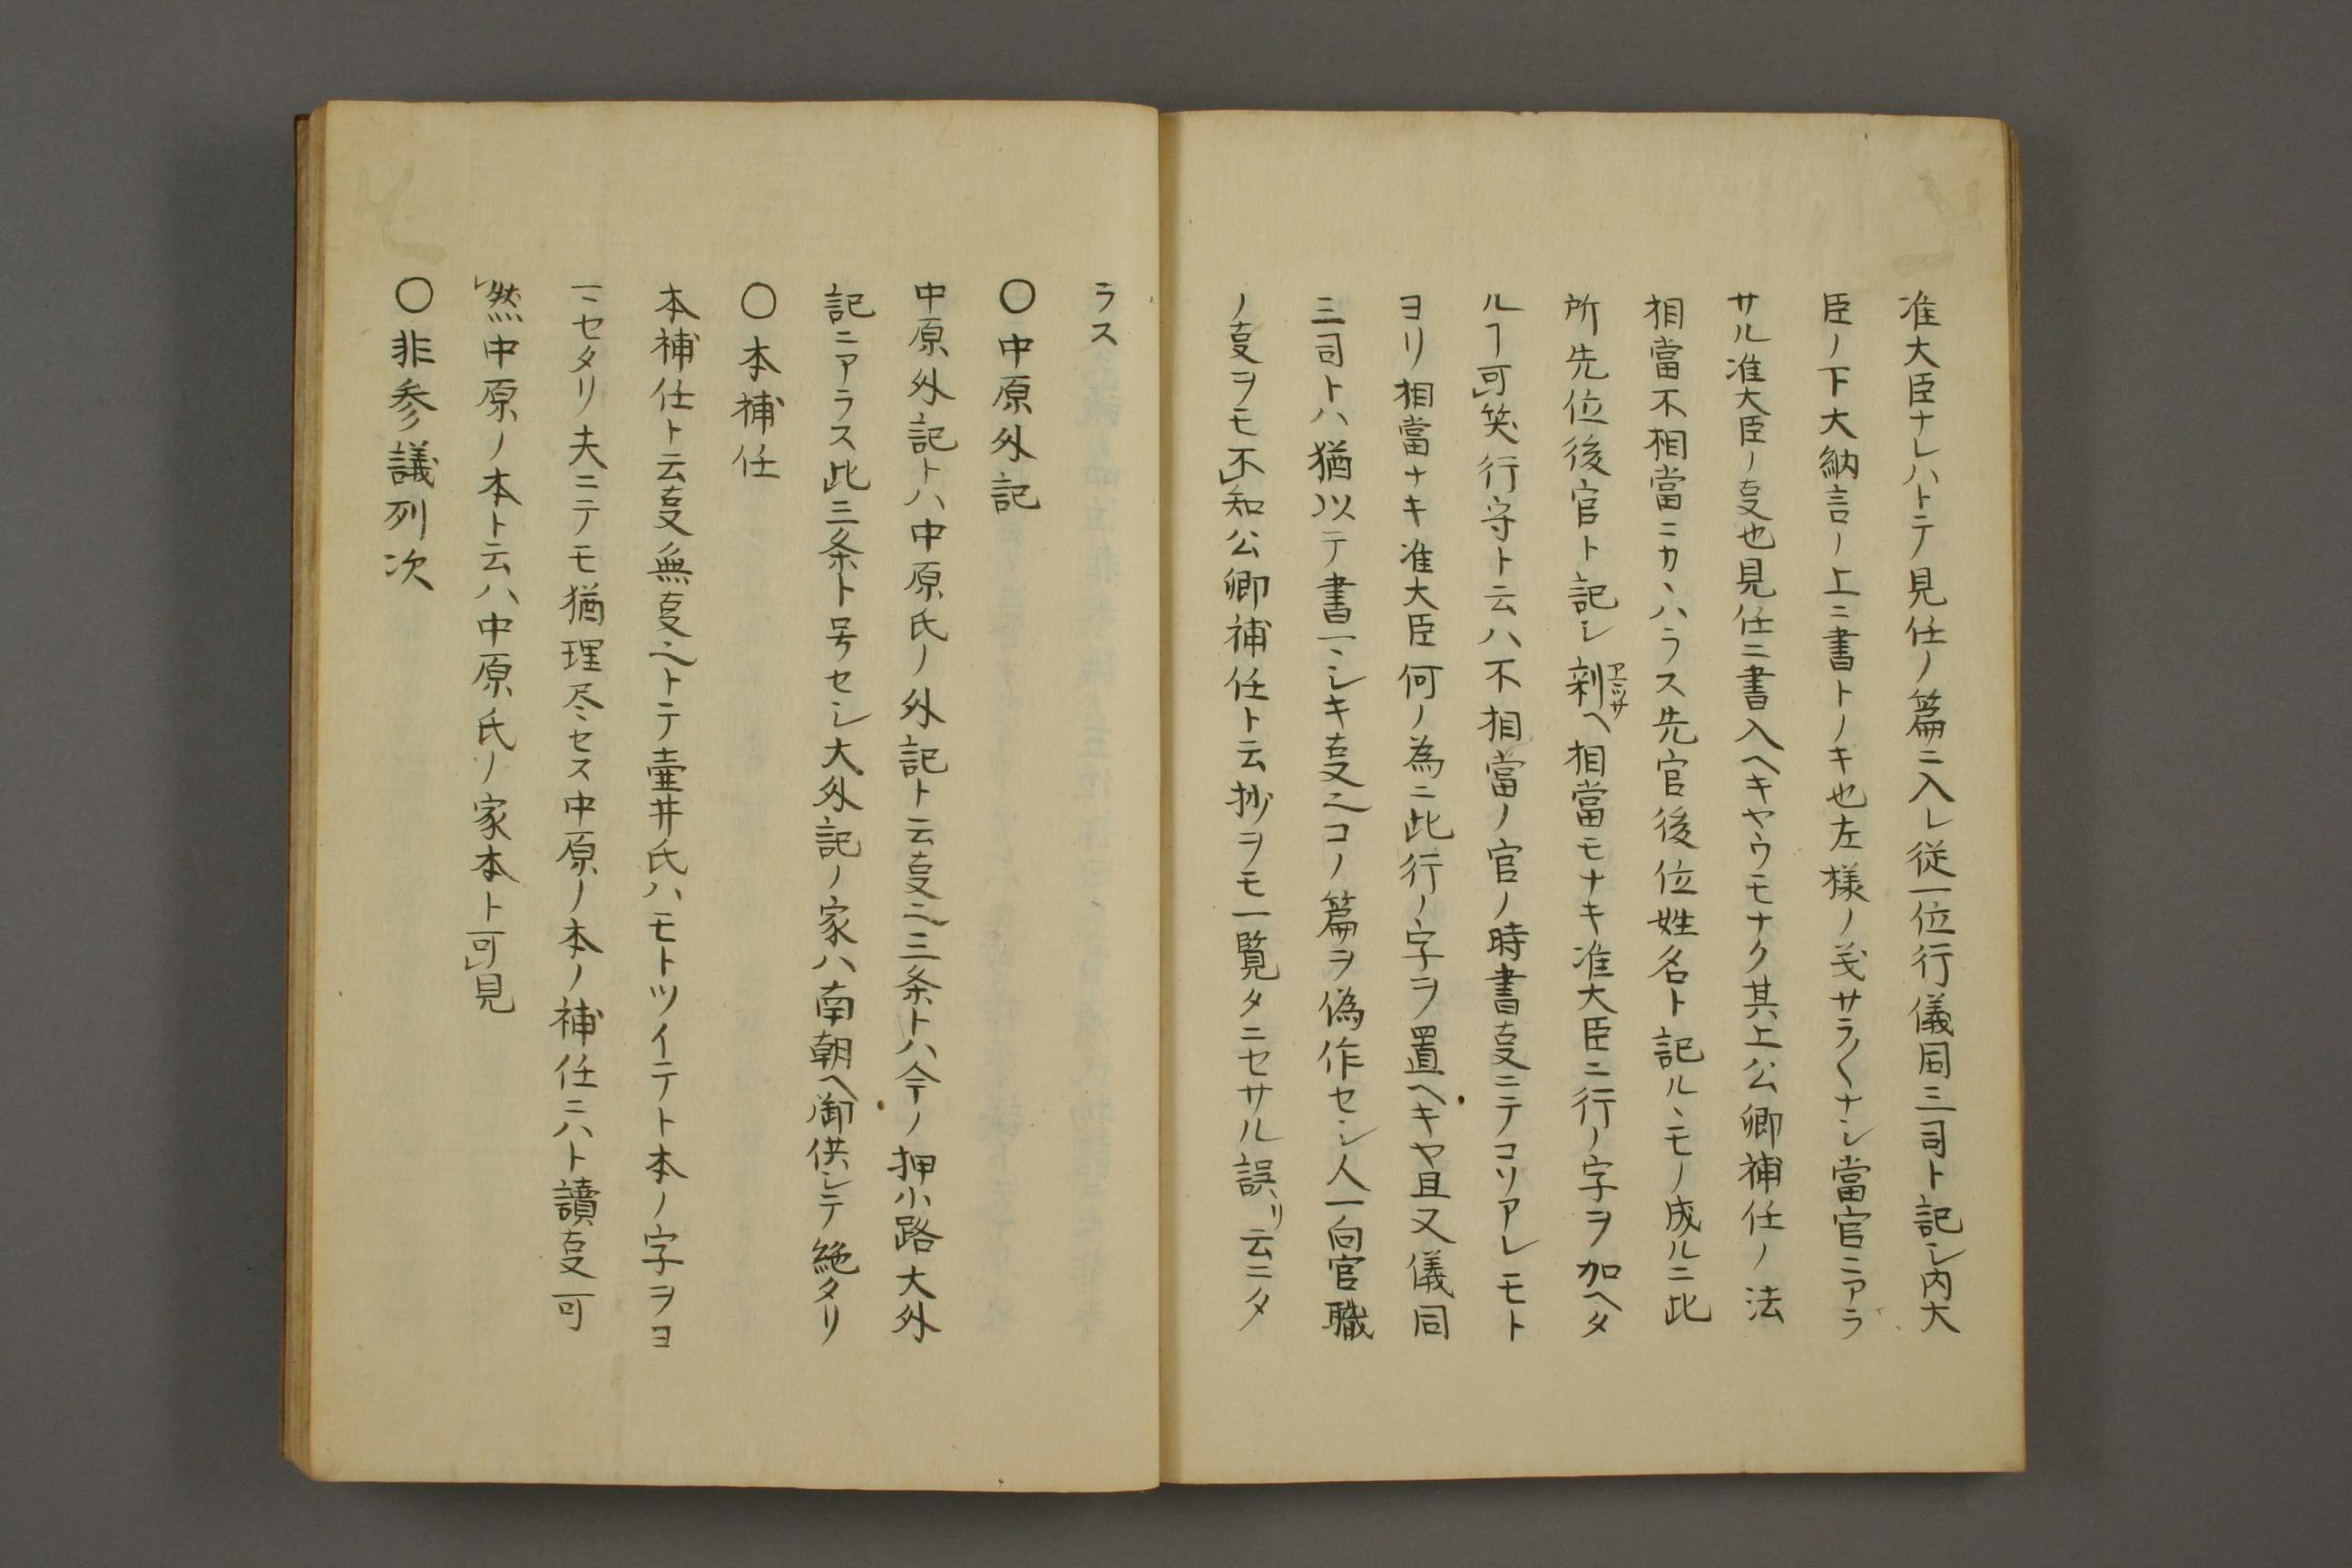 准大臣ナレハトテ見任ノ篇ニ入レ従一位行儀同三司ト記シ内大
臣ノ下大納言ノ上ニ書トノキ也左様ノ義サラ〱ナシ當官ニアラ
サル准大臣ノ㕝也見任ニ書入ヘキヤウモナク其上公卿補任ノ法
相當不相當ニカヽハラス先官後位姓名ト記ルヽモノ成ルニ此
所先位後官ト記シ剰アマツサヘ相當モナキ准大臣ニ行ノ字ヲ加ヘタ
ルヿ可笑行守ト云ハ不相當ノ官ノ時書㕝ニテコソアレモト
ヨリ相當ナキ准大臣何ノ為ニ此行ノ字ヲ置ヘキヤ且又儀同
三司トハ猶以テ書マシキ㕝也コノ篇ヲ偽作セシ人一向官職
ノ㕝ヲモ不知公卿補任ト云抄ヲモ一覧タニセサル誤リ云ニタ
ラス
〇中原外記
中原外記トハ中原氏ノ外記ト云㕝也三条トハ今ノ押小路大外
記ニアラス此三条ト号セシ大外記ノ家ハ南朝ヘ御供シテ絶タリ
〇本補任
本補任ト云㕝無㕝也トテ壷井氏ハモトツイテト本ノ字ヲヨ
マセタリ夫ニテモ猶理尽セス中原ノ本ノ補任ニハト讀㕝可
然中原ノ本ト云ハ中原氏ノ家本ト可見
〇非参議列次